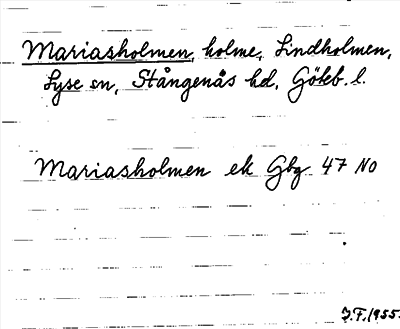 Mariasholmen, holme, Lindholmen,
Lyse sn, Stångenäs hd, Göteb. l.
Mariasholmen ek Gbg 47 NO
J.F. 1955.